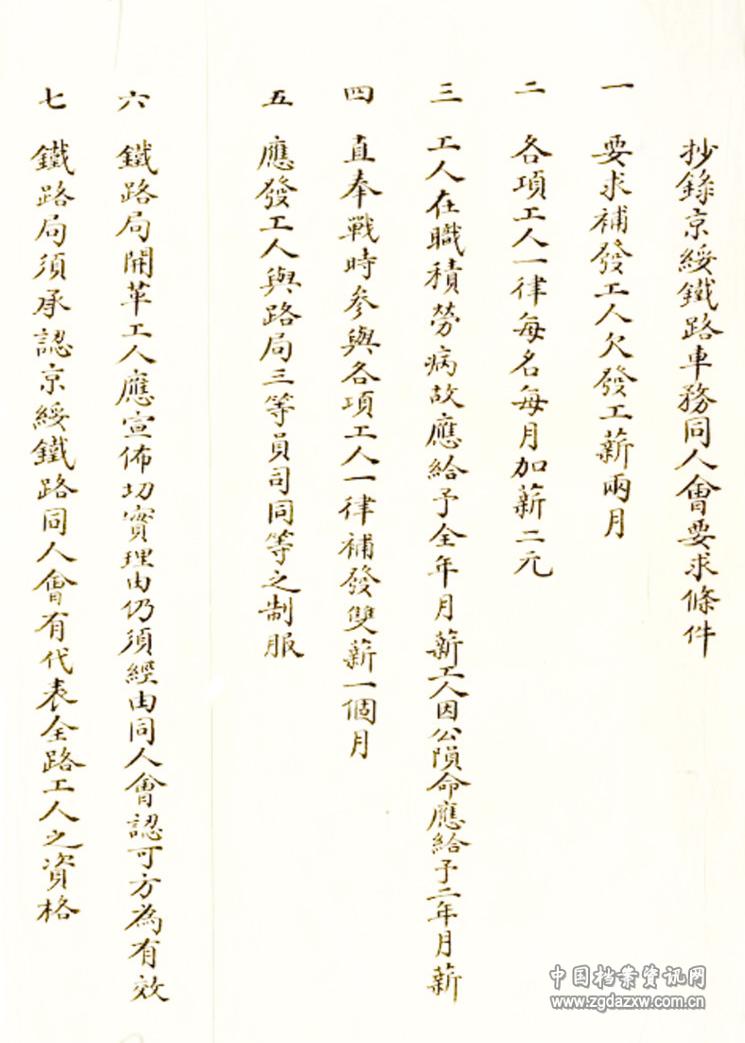 抄錄京綏鐵路車務同人會要求條件
一 要求補發工人欠發工薪兩月
二 各項工人一律每名每月加薪二元
三 工人在職積勞病故應給予全年月薪工人因公隕命應給予二年月薪
四 直奉戰時參與各項工人一律補發雙薪一個月
五 應發工人與路局三等員司同等之制服
六 鐵路局開革工人應宣佈切實理由仍須經由同人會認可方為有效
七 鐵路局須承認京綏鐵路同人會有代表全路工人之資格
中国档案资讯网
www.zgdazxw.com.cn